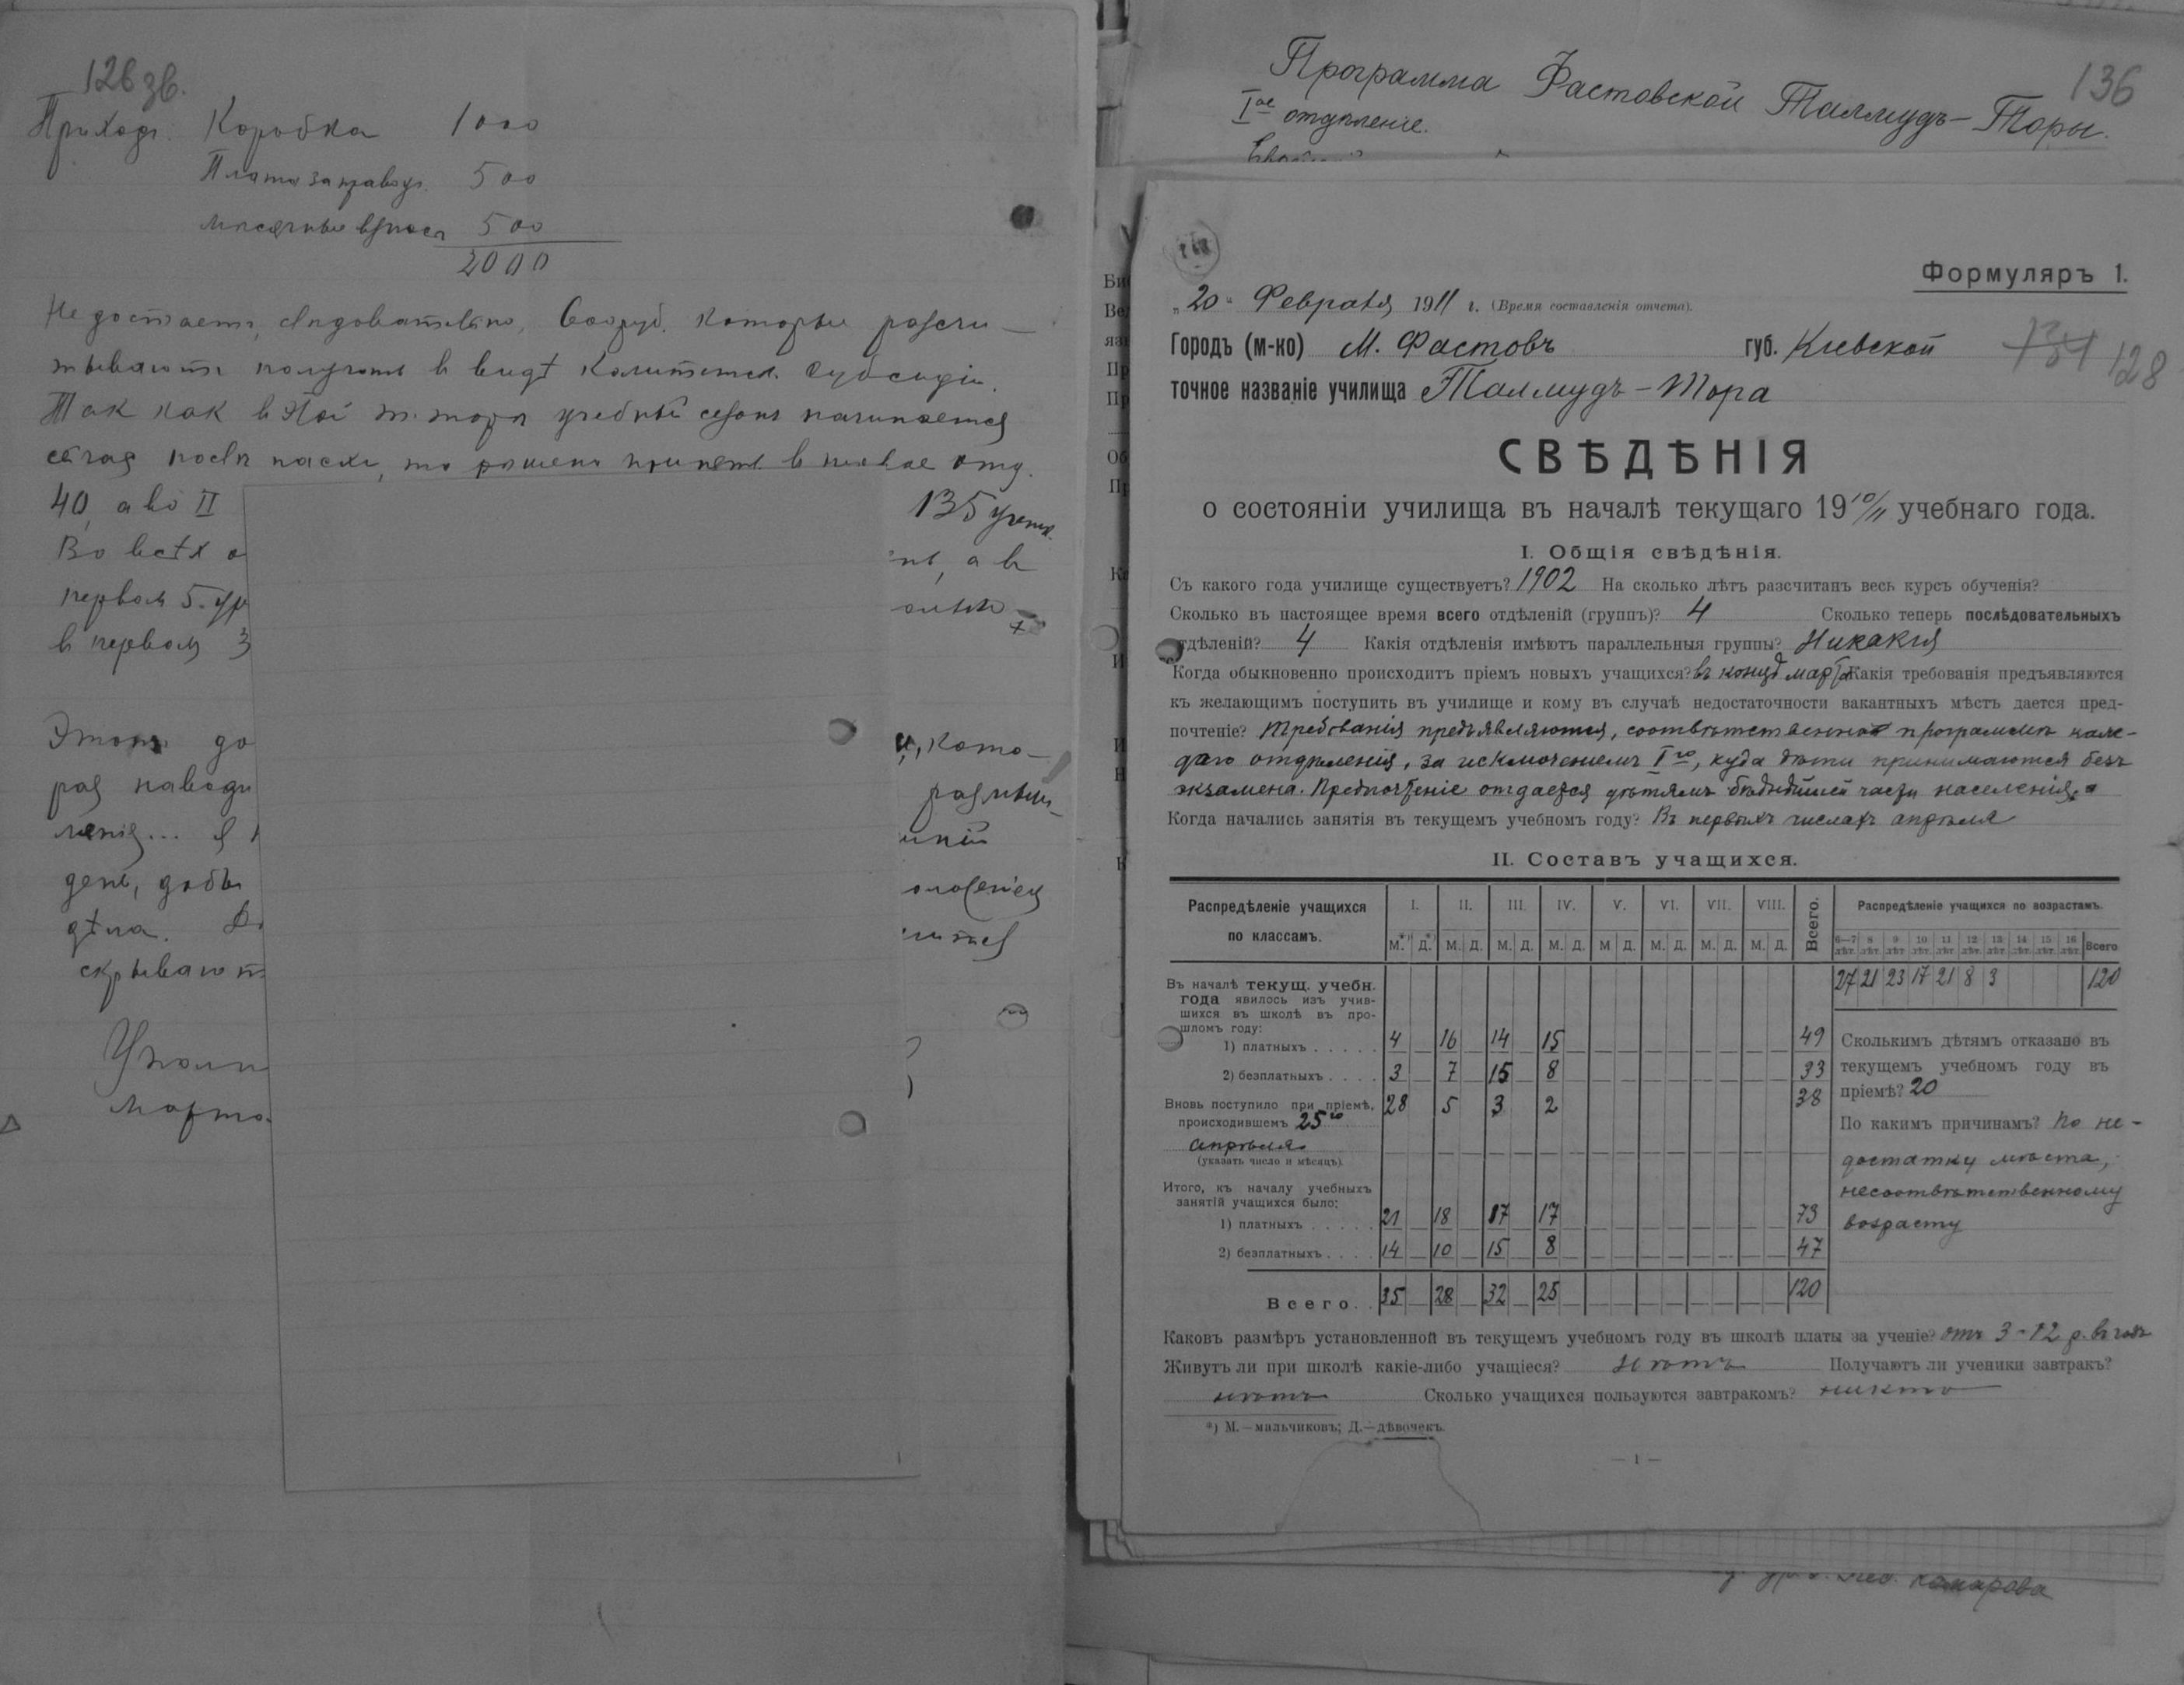 126 зв.
Приходъ: Коробка 1000
Плата за правоуч. 500
мѣсячные взносы 500
2000
Не достаетъ, слѣдовательно, 600 руб. которые разсчи-
тываютъ получить в видѣ Комитетск. субсидіи.
Так как в этой т. торѣ учебный сезонъ начинается
сейчас послѣ пасхи, то рѣшено принять в первое отд.
40, а во II
135 учен.
Во всѣх о
а в
первом 5. ур
в первом 3
Этотъ до
, кото-
рая наводи
ленія... я
день, добы
дѣла.
скрывают
Уполн
136
Программа Фастовской Талмудъ-Торы.
Iое отдѣленіе.
Формуляръ 1.
„20“ Февраля 1911 г. (Время составленія отчета).
Городъ (м-ко) М. Фастовъ губ. Кіевской
128
точное названіе училища Талмудъ-Тора
СВѢДѢНІЯ
о состояніи училища въ началѣ текущаго 19 10/11 учебнаго года.
I. Общія свѣдѣнія.
Съ какого года училище существуетъ? 1902 На сколько лѣтъ разсчитанъ весь курсъ обученія?
Сколько въ настоящее время всего отдѣленій (группъ)? 4 Сколько теперь послѣдовательныхъ
отдѣленій? 4 Какія отдѣленія имѣютъ параллельныя группы? Никакія
Когда обыкновенно происходитъ пріемъ новыхъ учащихся? въ концѣ марта Какія требованія предъявляются
къ желающимъ поступить въ училище и кому въ случаѣ недостаточности вакантныхъ мѣстъ дается пред-
почтеніе? Требованія предъявляются, соотвѣтственно программѣ каж-
даго отдѣленія, за исключеніемъ Iго, куда дѣти принимаются безъ
экзамена. Предпочтеніе отдается дѣтямъ бѣднѣйшей части населенія.
Когда начались занятія въ текущемъ учебномъ году? Въ первыхъ числахъ апрѣля
II. Составъ учащихся.
Распредѣленіе учащихся по классамъ. I. II. III. IV. V. VI. VII. VIII. Всего. Распредѣленіе учащихся по возрастамъ.
М.*) Д.*) М. Д. М. Д. М. Д. М Д. М. Д. М. Д. М. Д. 6—7 лѣт. 8 лѣт. 9 лѣт. 10 лѣт. 11 лѣт. 12 лѣт. 13 лѣт. 14 лѣт. 15 лѣт. 16 лѣт. Всего
27 21 23 17 21 8 3 120
Въ началѣ текущ. учебн.
года явилось изъ учив-
шихся въ школѣ въ про-
шломъ году:
1) платныхъ 4 16 14 15 49
2) безплатныхъ 3 7 15 8 33
Вновь поступило при пріемѣ, 28 5 3 2 38
происходившемъ 25го
апрѣля
(указать число и мѣсяцъ).
Итого, къ началу учебныхъ
занятій учащихся было:
1) платныхъ 21 18 17 17 73
2) безплатныхъ 14 10 15 8 47
Всего 35 28 32 25 120
Сколькимъ дѣтямъ отказано въ
текущемъ учебномъ году въ
пріемѣ? 20
По какимъ причинамъ? По не-
достатку мѣста,
несоотвѣтственному
возрасту
Каковъ размѣръ установленной въ текущемъ учебномъ году въ школѣ платы за ученіе? отъ 3-12 р. въ годъ
Живутъ ли при школѣ какіе-либо учащіеся? нѣтъ Получаютъ ли ученики завтракъ?
нѣтъ Сколько учащихся пользуются завтракомъ? никто
*) М.—мальчиковъ; Д.—дѣвочекъ.
— 1 —
Комарова